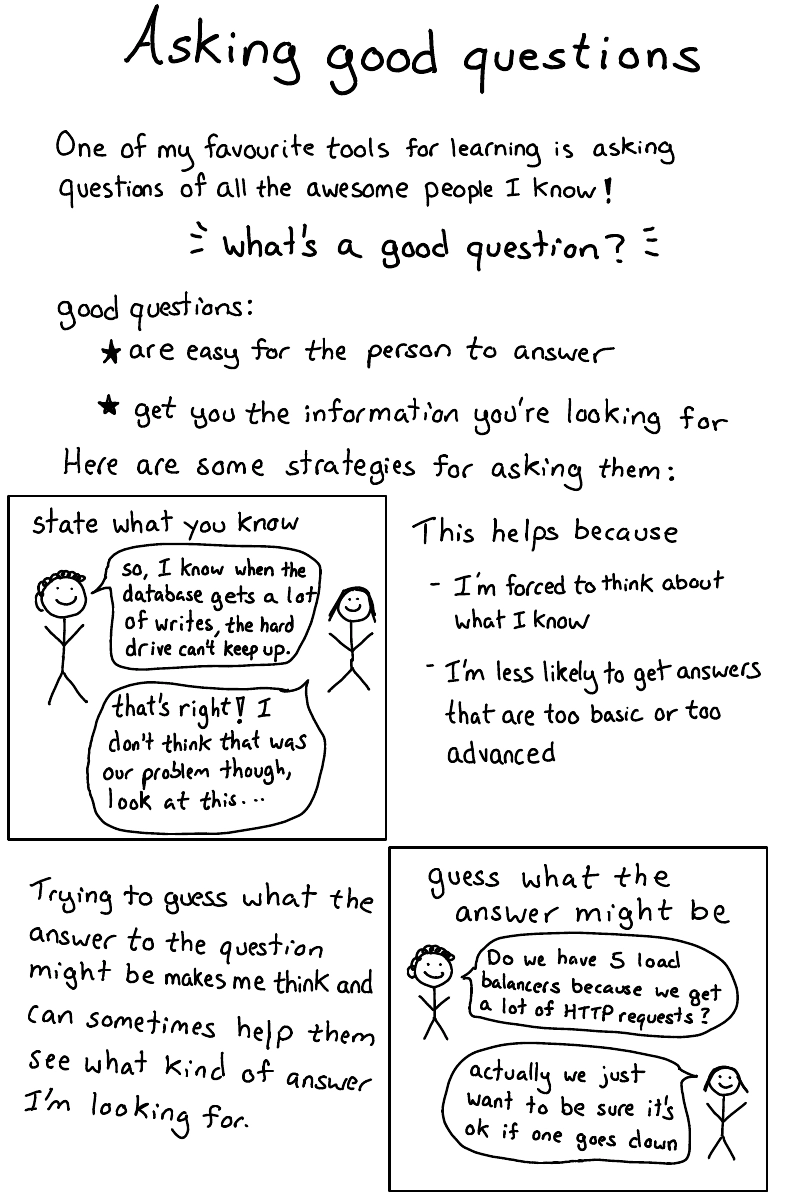 Asking good questions
One of my favourite tools for learning is asking
questions of all the awesome people I know!
what's a good question?
good questions:
★ are easy for the person to answer
★ get you the information you're looking for
Here are some strategies for asking them:
state what you know
so, I know when the
database gets a lot
of writes, the hard
drive can't keep up.
that's right! I
don't think that was
our problem though,
look at this...
This helps because
- I'm forced to think about
what I know
- I'm less likely to get answers
that are too basic or too
advanced
Trying to guess what the
answer to the question
might be makes me think and
can sometimes help them
see what kind of answer
I'm looking for.
guess what the
answer might be
Do we have 5 load
balancers because we get
a lot of HTTP requests?
actually we just
want to be sure it's
ok if one goes down